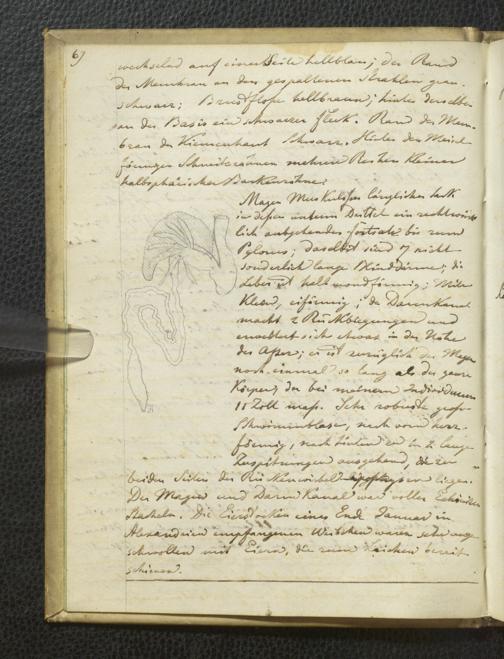 69
wechselnd auf einer Seite hellblau; der Rand
der Membran an den gespaltenen Strahlen grau
schwarz; Brustflosse hellbraun; hinter derselben
an der Basis ein schwarzer Fleck. Rand der Mem-
bran der Kiemenhaut schwarz. Hinter den Meisel-
förmigen Schneidezähnen mehrere Reihen kleiner
halbsphärischer Backenzähne.
Magen Muskulös länglicher Sack
in deßen unterm Drittel ein rechtwink-
lich abgehender Fortsatz bis zum
Pylorus; daselbst sind 7 nicht
sonderlich lange Blinddärme; die
Leber ist halbmondförmig; Milz
klein, eiförmig; der Darmkanal
macht 2 Rückbiegungen und
erweitert sich etwas in der Nähe
des Afters; er ist bezüglich des Magen
noch einmal so lang als der ganze
Körper, der bei meinem Individuum
11 Zoll maß. Sehr robuste große
Schwimmblase, nach vorn herz-
förmig, nach hinten in 2 lange
Zuspitzungen ausgehend, die zu
beiden Seiten der Rückenwirbel liegen.
Der Magen und Darmkanal war voller Echiniten
Stacheln. Die Eierstöcke eines Ende Januar in
Alexandrien empfangenen Weibchen waren sehr ange
schwollen mit Eiern, die zum Laichen bereit
schienen.